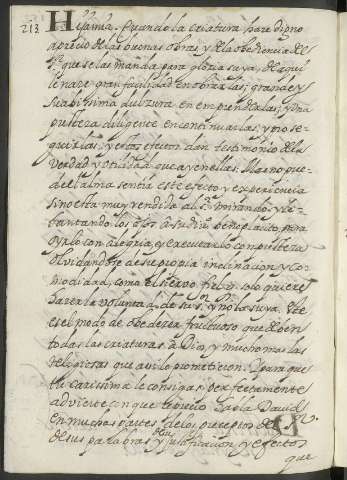 213
Hija mia. Quando la criatura haze digno
aprecio de las buenas obras y de la obediencia del
Sr. que se las manda para gloria suya, de aqui
le naze gran facilidad en obrarlas; grande y
suabissima dulzura en emprenderlas; y una
presteza diligente en continuarlas y pro se-
guirlas: y estos efectos dan testimonio de la
verdad y utilidad que ay en ellas. Mas no pue-
de el alma sentir este efecto y experiencia
si no esta muy rendida al Sr. mirando y le-
bantando los ojos a su divino beneplacito, para
oyrlo con alegria, y executarlo con presteza
olvidandose de su propia inclinacion y co-
modidad, como el siervo fiel q solo quiere
hazer la voluntad de su Sr. y no la suya. Este
es el modo de obedezer fructuoso que deben
todas las criaturas a Dios, y mucho mas las
religiosas que asi lo prometieron. Y para que
tu carissima le consigas perfectamente
advierte con que aprecio habla David
en muchas partes de los preceptos del Sr.
de sus palabras de su justificacion y efectos
que